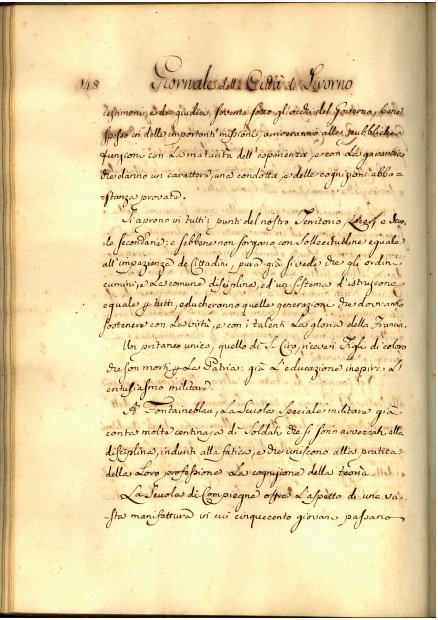 148 Giornale della Città di Livorno
testimonj, e da giudici, sovente sotto gl'occhi del Governo, bene
spesso in delle importanti missioni, arriveranno alle pubbliche
funzione con la maturità dell'esperienza, e con la garanzia
che danno un carattere, una condotta, e delle cognizioni abba=
stanza provate.
Si aprono in tutti i punti del nostro Territorio, Licei, e Scuo=
le secondarie: e sebbene non sorgano con sollecitudine eguale
all'impazienza de Cittadini, pure già si vede che gli ordini
comuni, e la comune disciplina, ed un sistema d'istruzione
eguale p tutti, educheranno quelle generazioni che dovranno
sostenere con la virtù, e con i talenti la gloria della Francia.
Un pritaneo unico, quello di S. Ciro, riceve i Figli di coloro
che son morti p la Patria: già l'educazione inspire l'
entusiasmo militare.
A Fontainebleau, la Scuola Speciale militare già
conta molte centinaja di Soldati che si sono avvezzati alla
disciplina, induriti alla fatica, e che uniscono alla pratica
della loro professione la cognizione della teoria.
La Scuola di Compiegne offre l'aspetto di una va=
sta manifattura in cui cinquecento giovani passano